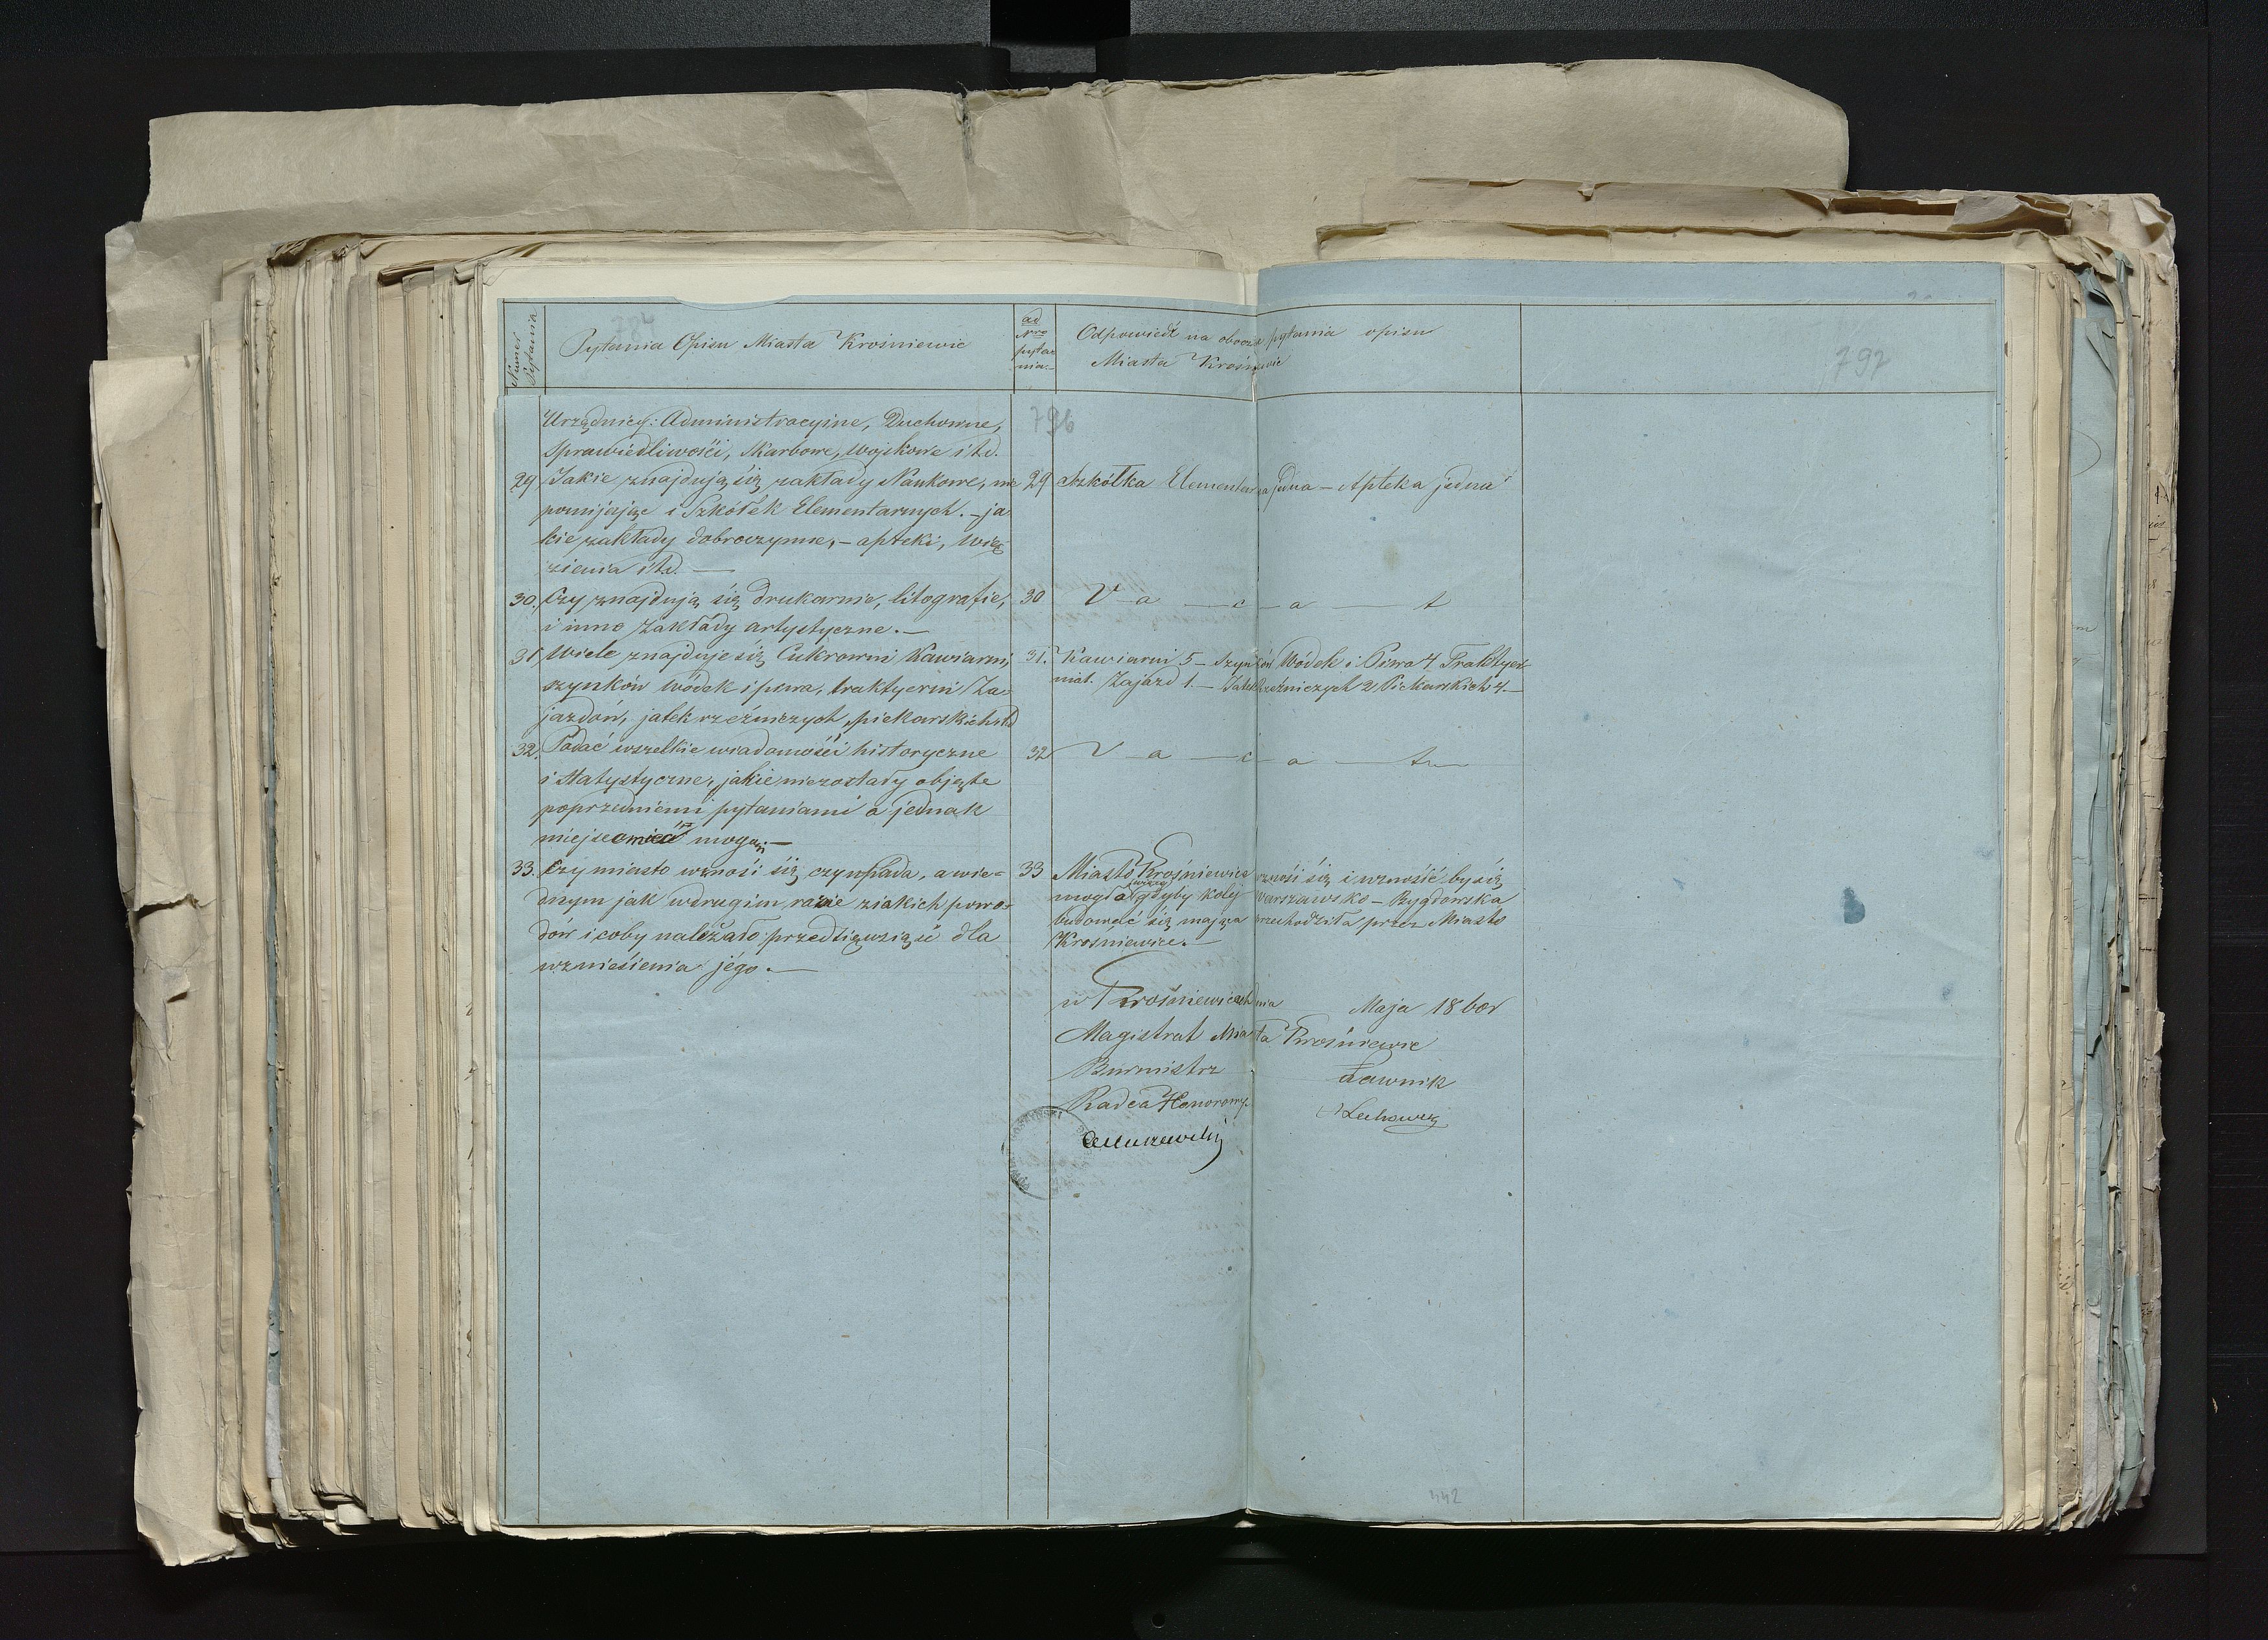 Numer Pytania
784
Pytania Opisu Miasta Krośniewic
ad
pro
pyta=
nia=
Odpowiedź na obocze pytania opisu
Miasta Krośniewic
797
796
Urzędnicy: Administracyine, Duchowne,
Sprawiedliwości, Skarbowe, Wojskowe i t.d.
29 Jakie znajdują się zakłady Naukowe, nie
pomijając i Szkółek Elementarnych. – ja
kie zakłady dobroczynne, – apteki, Wię
zienia i t.d. —
30. Czy znajdują się drukarnie, litografie,
i inne Zakłady artystyczne. —
31 Wiele znajduje się Cukrowni Kawiarni
szynków wódek i piwa, traktyerni Za=
jazdów, jatek rzeźniczych, piekarskich itd
32. Podać wszelkie wiadomości historyczne
i statystyczne, jakie niezostały objęte
poprzedniemi pytaniami a jednak
miejsce mieć mogą. —
33. Czy miasto wznosi się czy upada, a wie=
dnym jak wdrugim razie ziakich powo=
dów i coby należało przedsięwsiąść dla
wzniesienia jego. —
29 Szkółka Elementarna jedna – Apteka jedna
30 V – a — c – a — t
31. Kawiarni 5 – Szynków Wódek i Piwa 4 Traktyer
nia 1. Zajazd 1. – Jatek Rzeźniczych 2 Piekarskich 4. –
32 V – a — c – a — t —
33 Miasto Krośniewice wznosi się i wznosić by się
mogło gdyby kolej Warszawsko – Bygdowska
budować się mająca przechodziła przez Miasto
Krośniewice. —
w Krośniewicach dnia Maja 1860r
Magistrat Miasta Krośniewic
Burmistrz Ławnik
Radca Honorowy
442